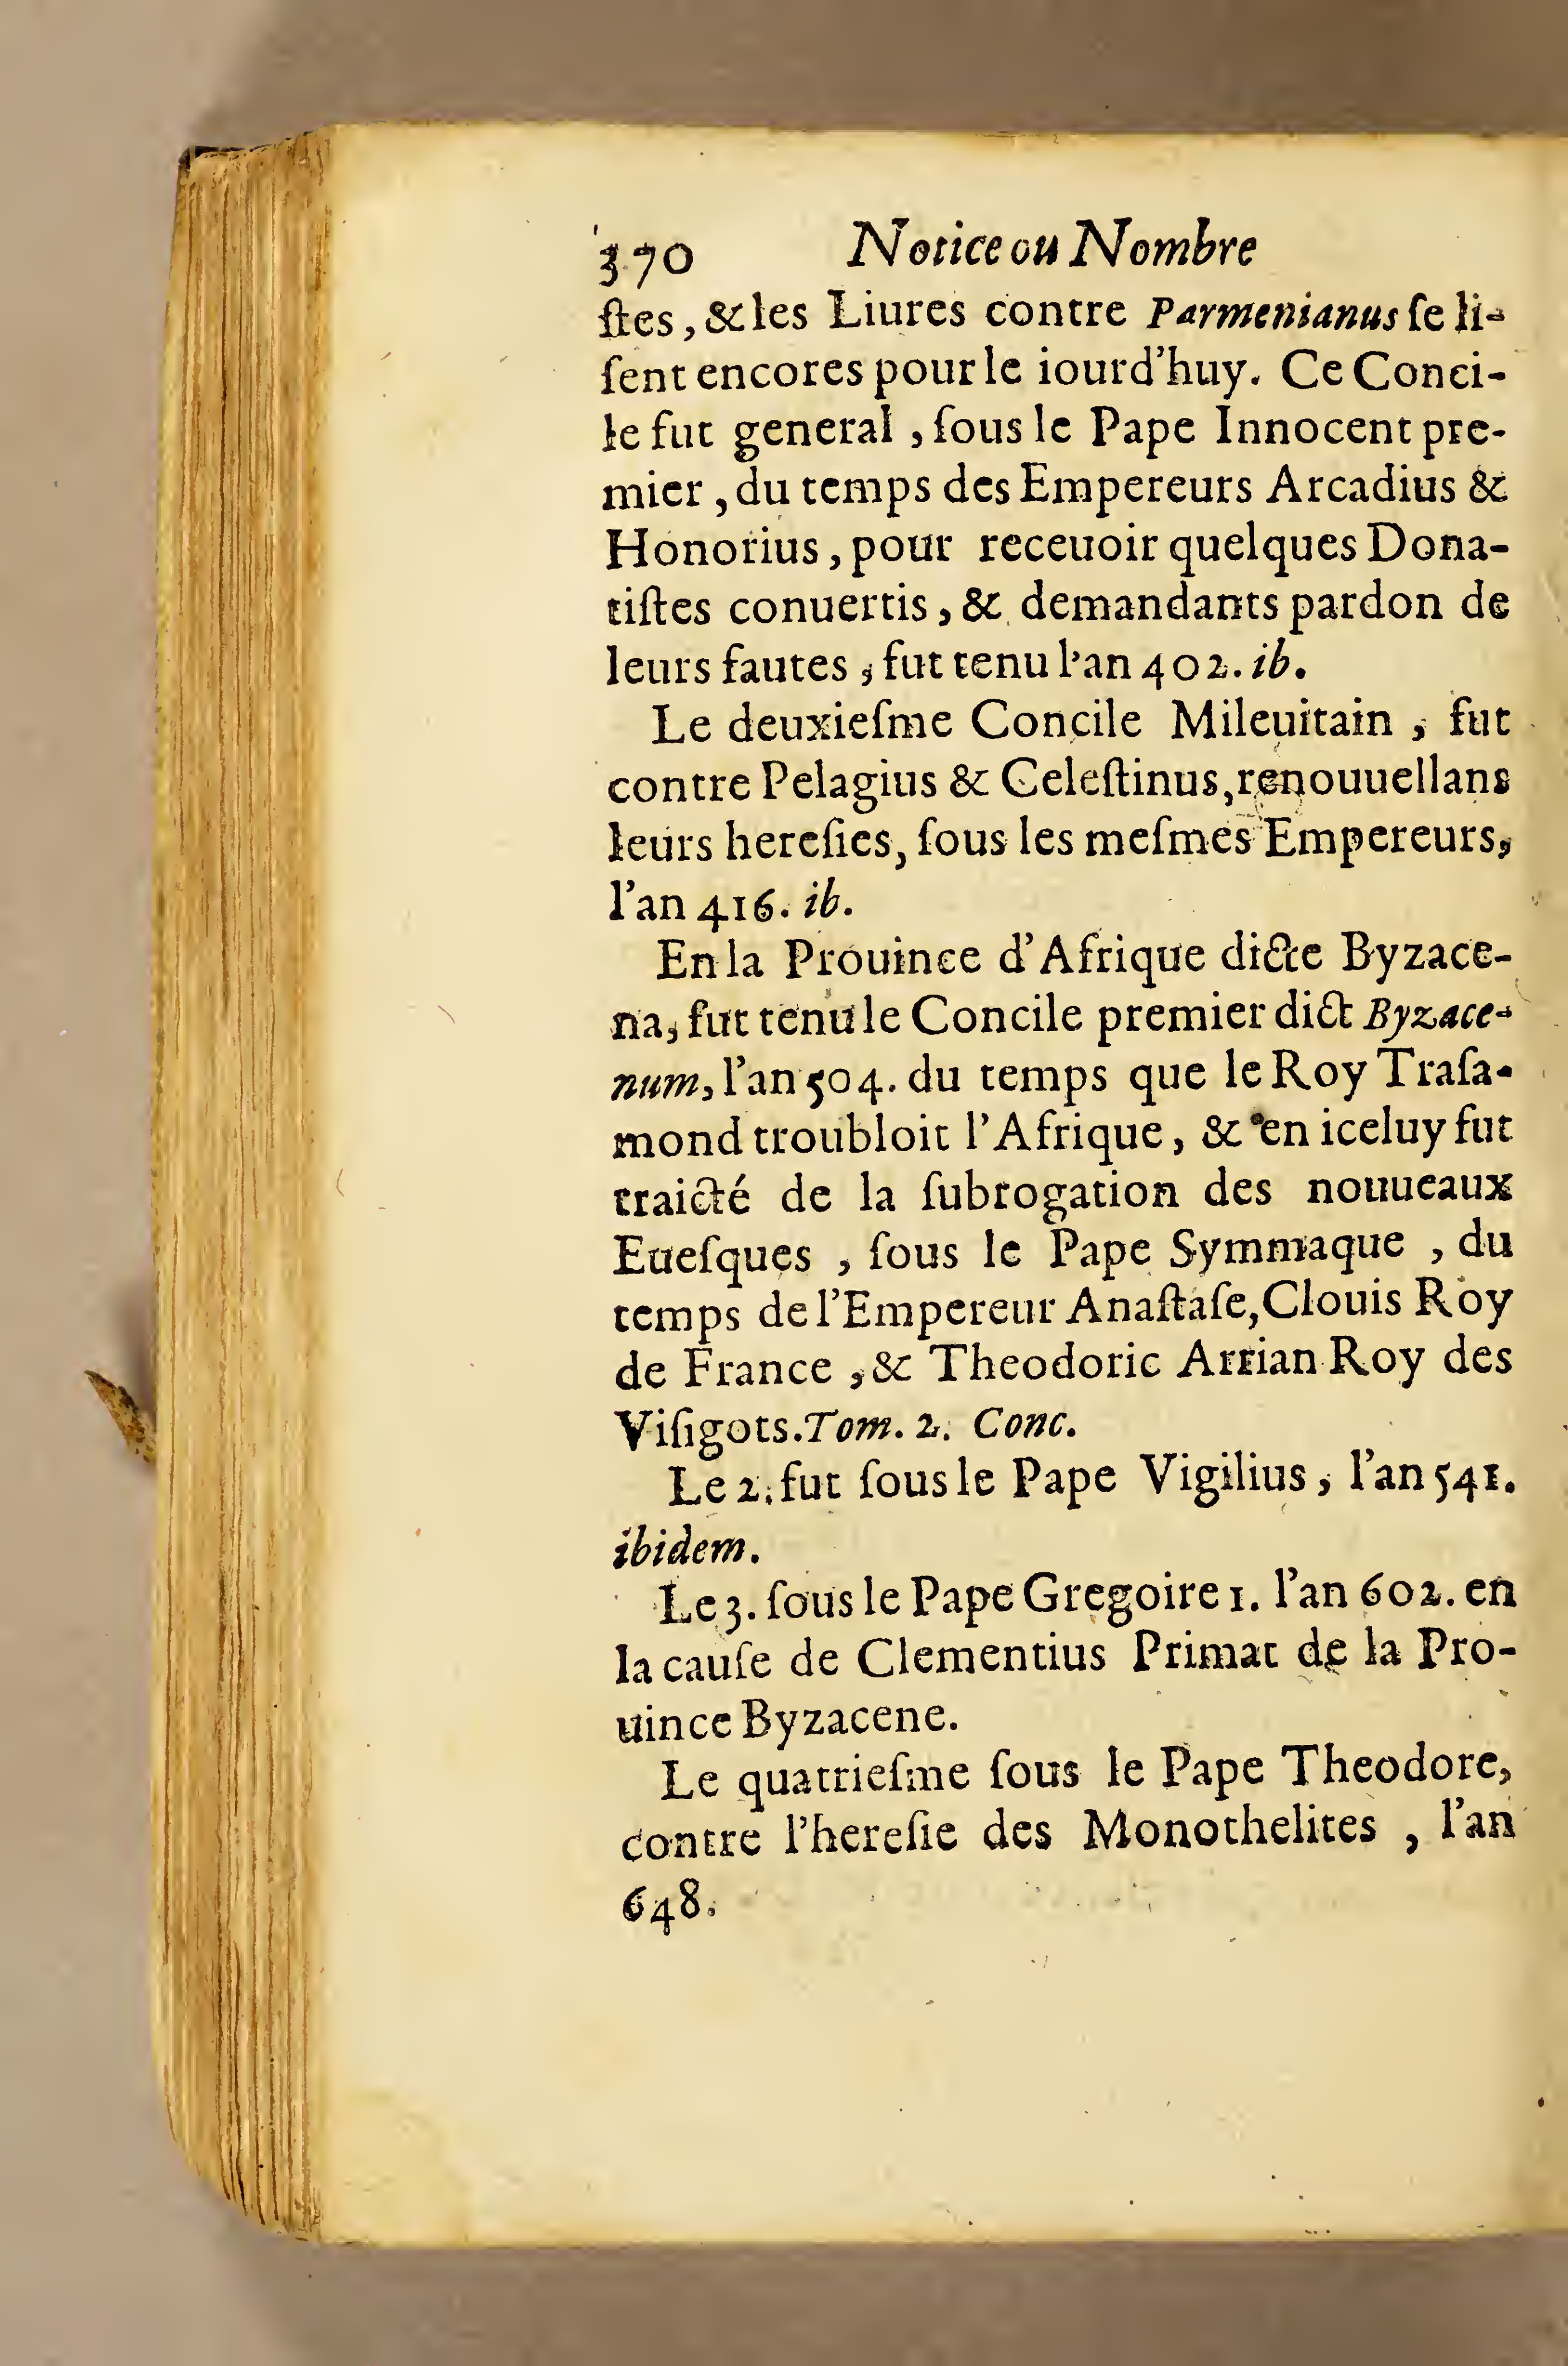 370 Notice ou Nombre
ſtes, & les Liures contre Parmenianus ſe li-
ſent encores pour le iourd'huy. Ce Conci-
le fut general, ſous le Pape Innocent pre-
mier, du temps des Empereurs Arcadius &
Honorius, pour receuoir quelques Dona-
tiſtes conuertis, & demandants pardon de
leurs fautes, fut tenu l'an 402. ib.
Le deuxieſme Concile Mileuitain, fut
contre Pelagius & Celeſtinus, renouuellans
leurs hereſies, ſous les meſmes Empereurs,
l'an 416. ib.
En la Prouince d'Afrique dicte Byzace-
na, fut tenu le Concile premier dict Byzace-
num, l'an 504. du temps que le Roy Traſa-
mond troubloit l'Afrique, & en iceluy fut
traicté de la ſubrogation des nouueaux
Eueſques, ſous le Pape Symmaque, du
temps de l'Empereur Anaſtaſe, Clouis Roy
de France, & Theodoric Arrian Roy des
Viſigots. Tom. 2. Conc.
Le 2. fut ſous le Pape Vigilius, l'an 541.
ibidem.
Le 3. ſous le Pape Gregoire 1. l'an 602. en
la cauſe de Clementius Primat de la Pro-
uince Byzacene.
Le quatrieſme ſous le Pape Theodore,
contre l'hereſie des Monothelites, l'an
648.